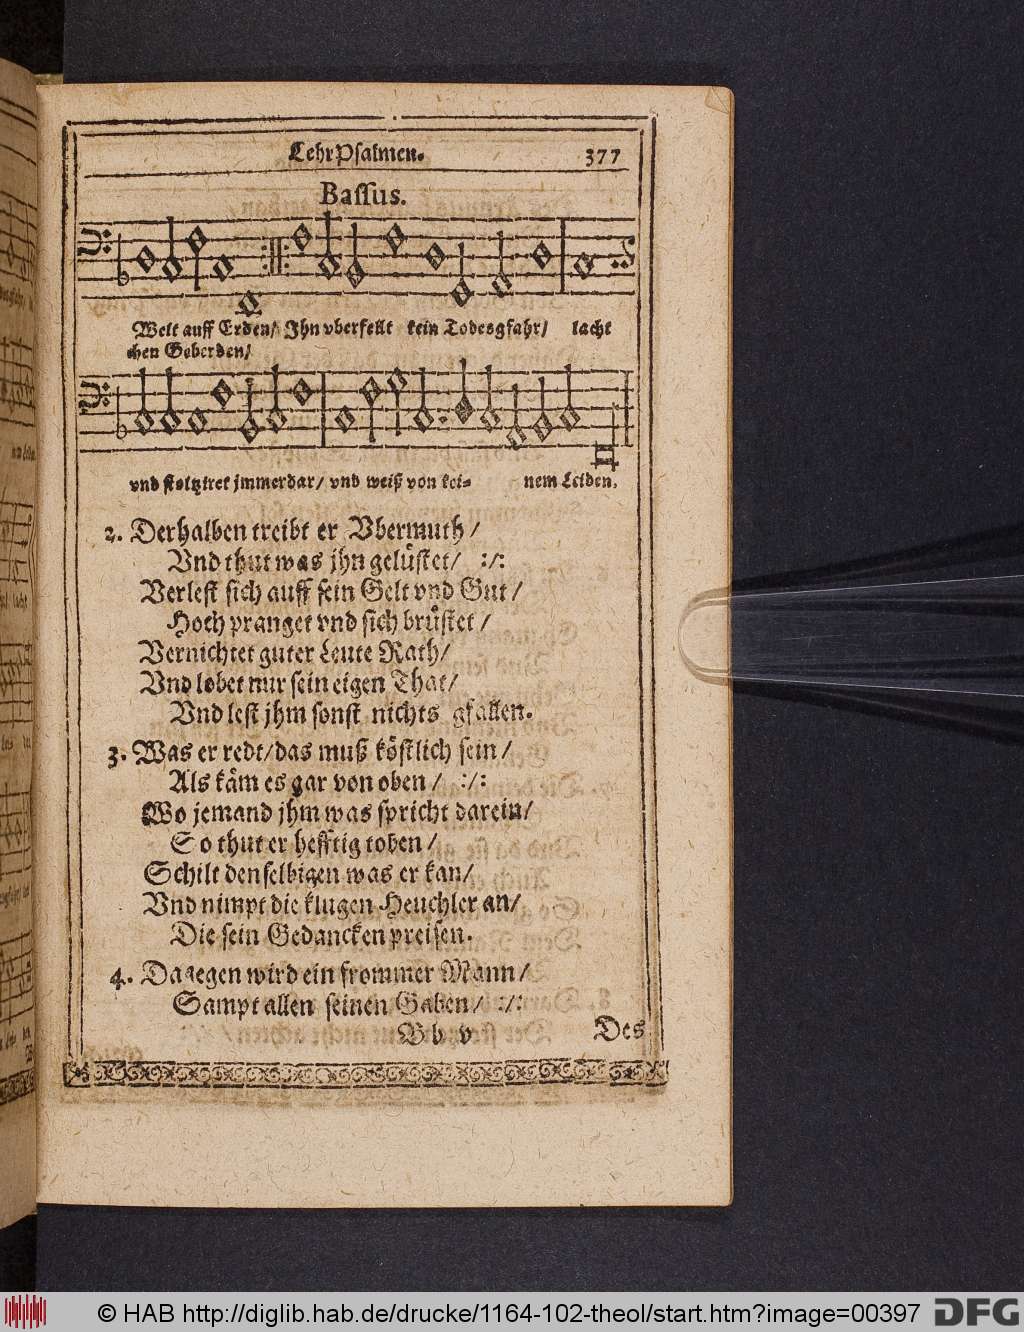 LehrPsalmen. 377
Bassus.
Welt auff Erden/ Jhn vberfellt kein Todesgfahr/ lacht
chen Geberden/
vnd stoltziret jmmerdar/ vnd weiß von kei= nem Leiden.
2. Derhalben treibt er Vbermuth/
Vnd thut was jhn gelüstet/ :/:
Verlest sich auff sein Gelt vnd Gut/
Hoch pranget vnd sich brüstet/
Vernichtet guter Leute Rath/
Vnd lobet nur sein eigen That/
Vnd lest jhm sonst nichts gfallen.
3. Was er redt/das muß köstlich sein/
Als käm es gar von oben/ :/:
Wo jemand jhm was spricht darein/
So thut er hefftig toben/
Schilt denselbigen was er kan/
Vnd nimpt die klugen Heuchler an/
Die sein Gedancken preisen.
4. Dagegen wird ein frommer Mann/
Sampt allen seinen Gaben/ :/:
B b v Des
© HAB http://diglib.hab.de/drucke/1164-102-theol/start.htm?image=00397 DFG